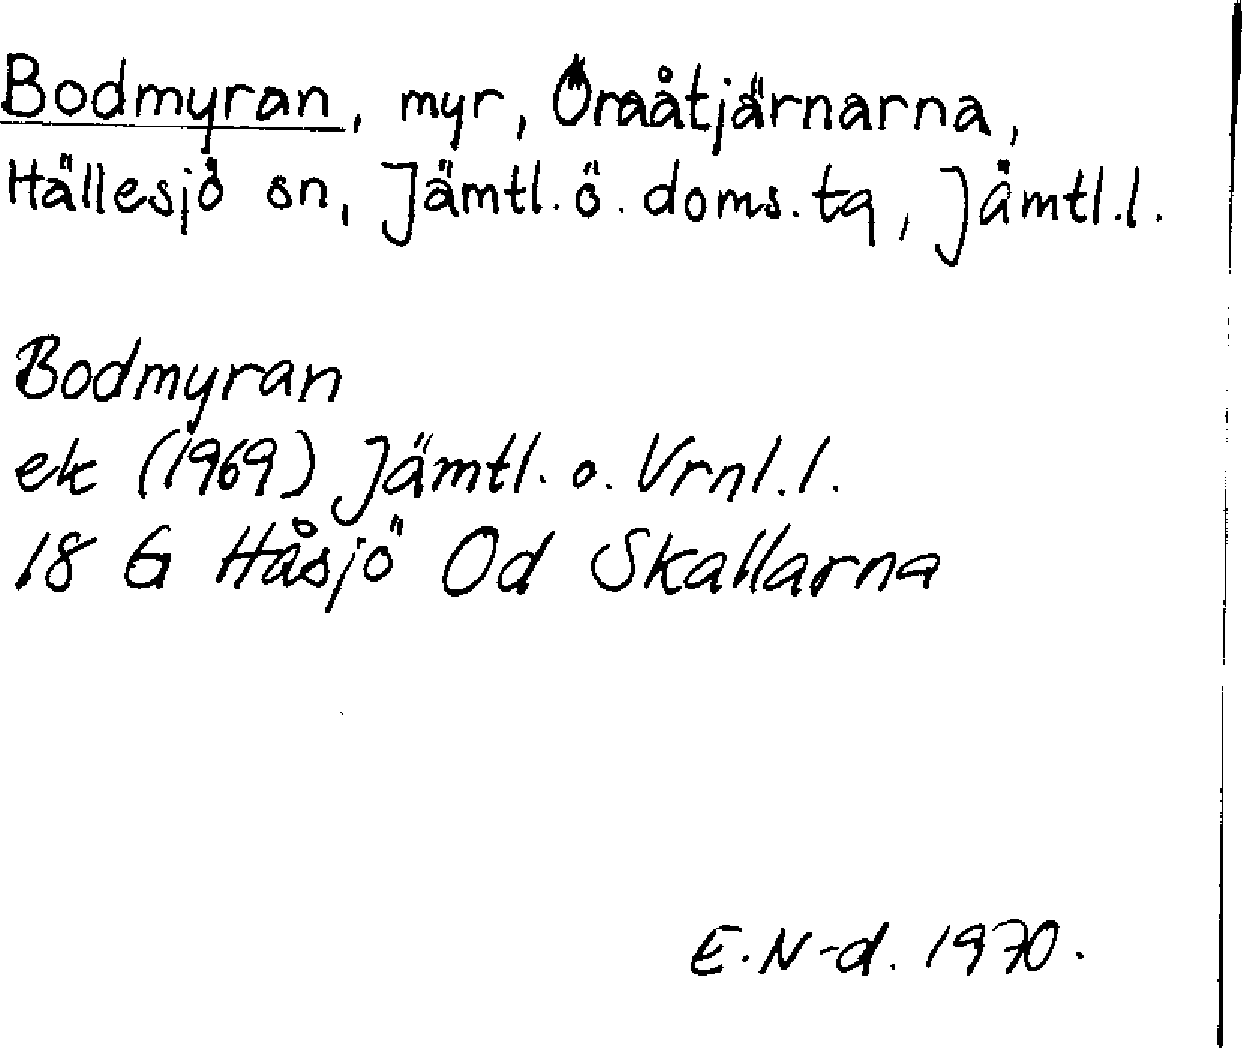 Bodmyran, myr, Öraåtjärnarna,
Hällesjö sn, Jämtl. ö. doms. tg, Jämtl. l.
Bodmyran
ek (1969) Jämtl. o. Vrnl. l.
18 G Håsjö Od Skallarna
E. N-d. 1970.